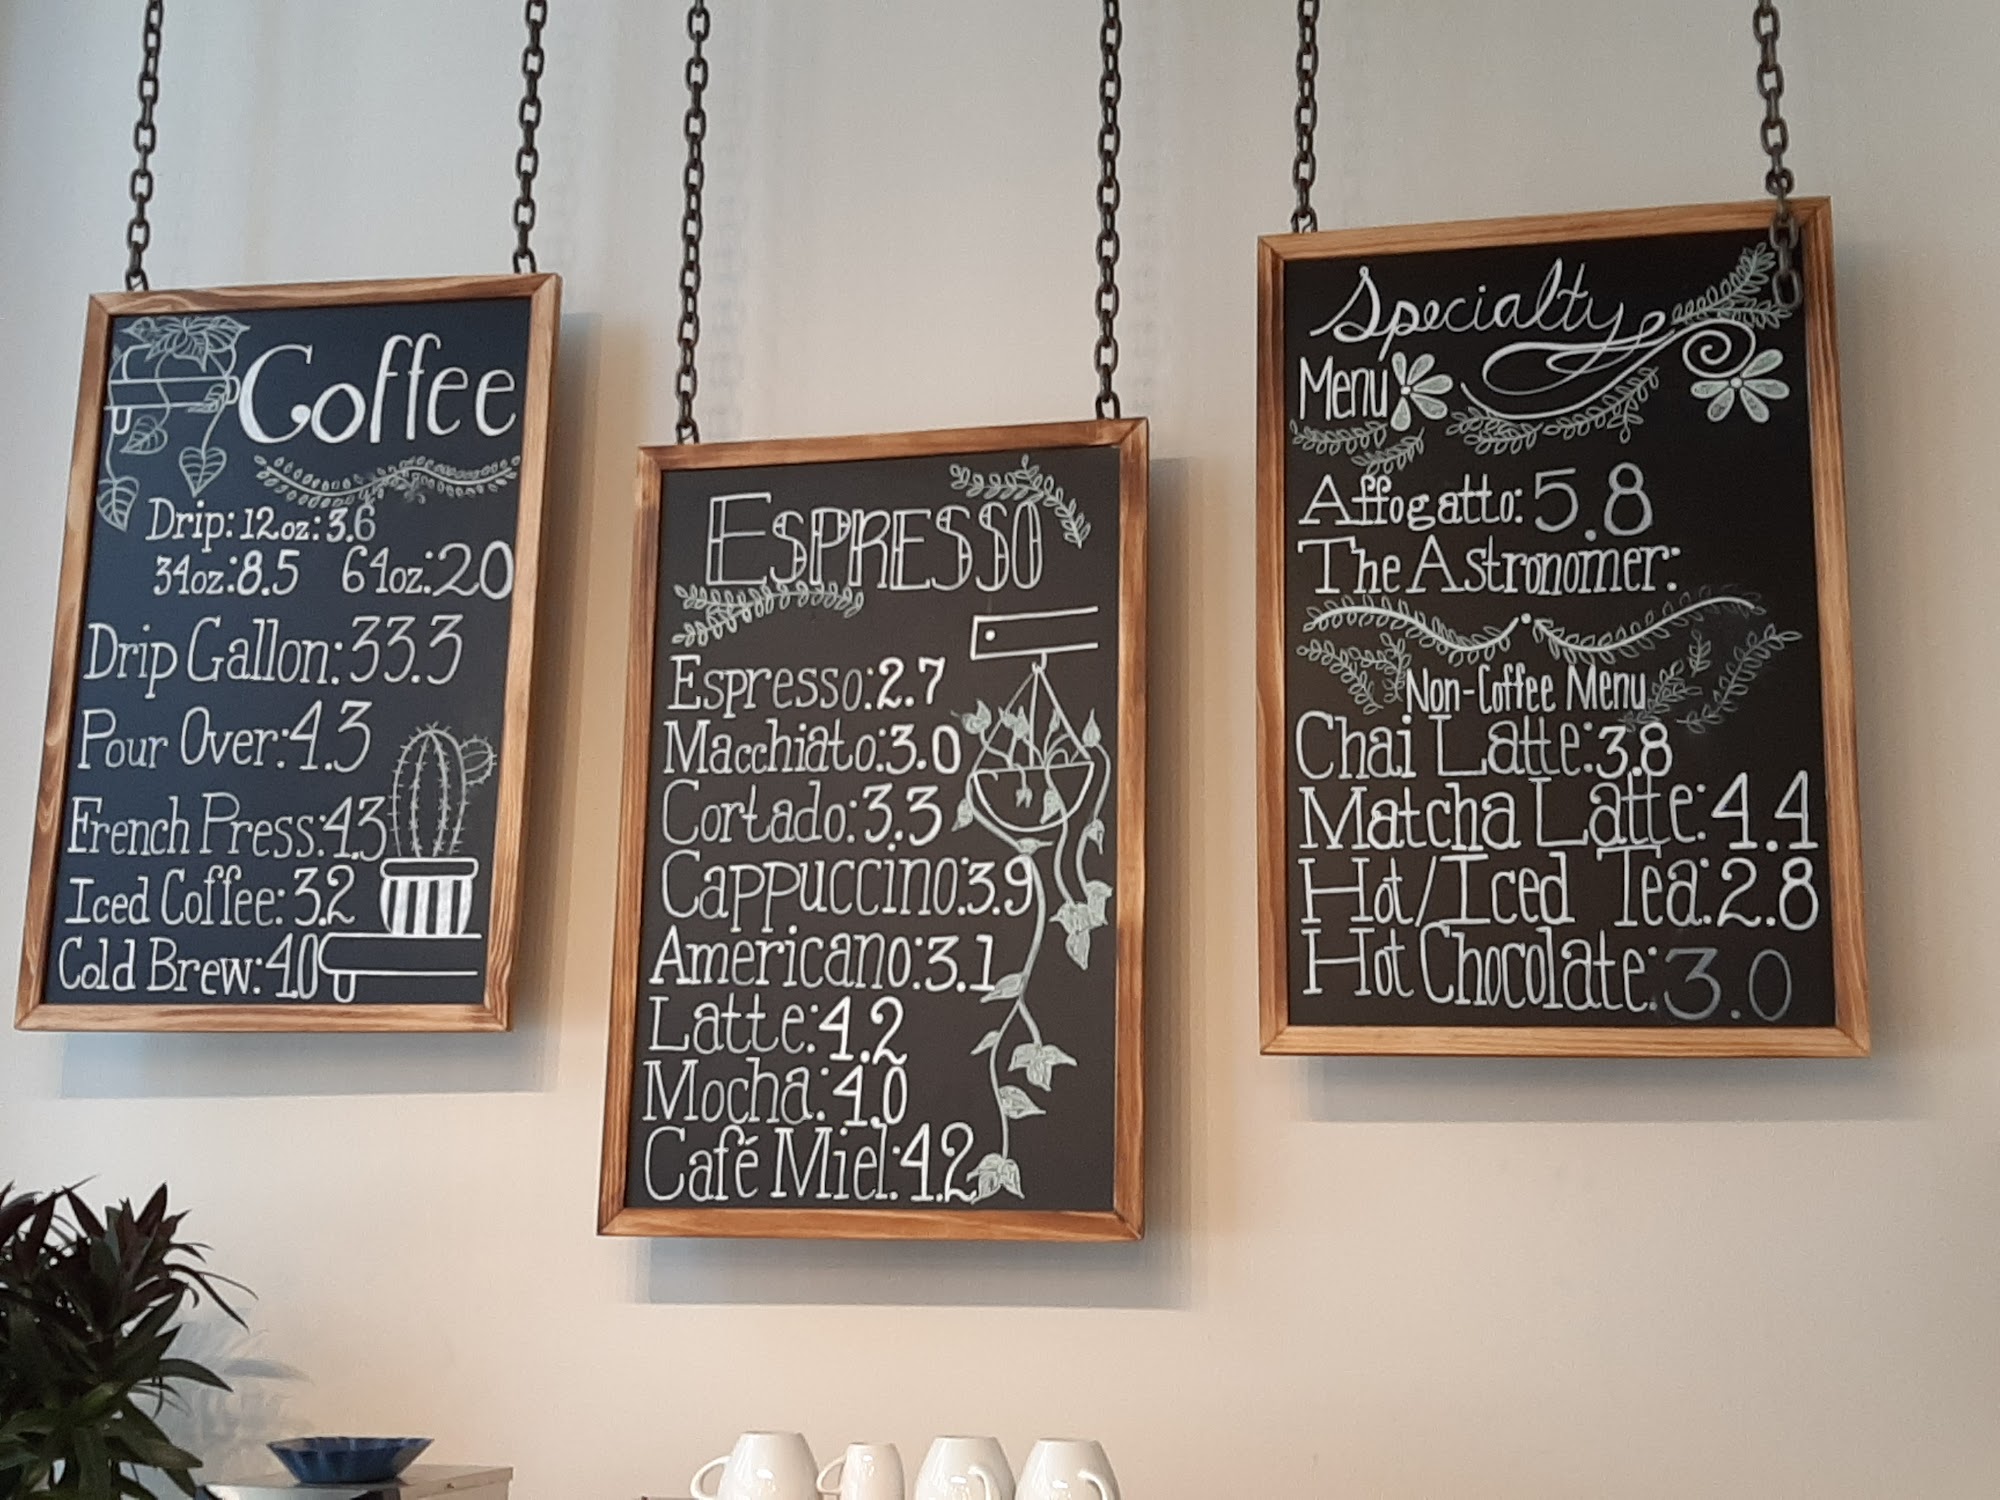 Coffee
Drip: 12oz: 3.6
34oz: 8.5 64oz: 20
Drip Gallon: 33.3
Pour Over: 4.3
French Press: 4.3
Iced Coffee: 3.2
Cold Brew: 4.0
ESPRESSO
Espresso: 2.7
Macchiato: 3.0
Cortado: 3.3
Cappuccino: 3.9
Americano: 3.1
Latte: 4.2
Mocha: 4.0
Café Miel: 4.2
Specialty
Menu
Affogatto: 5.8
The Astronomer:
Non-Coffee Menu
Chai Latte: 3.8
Matcha Latte: 4.4
Hot/Iced Tea: 2.8
Hot Chocolate: 3.0